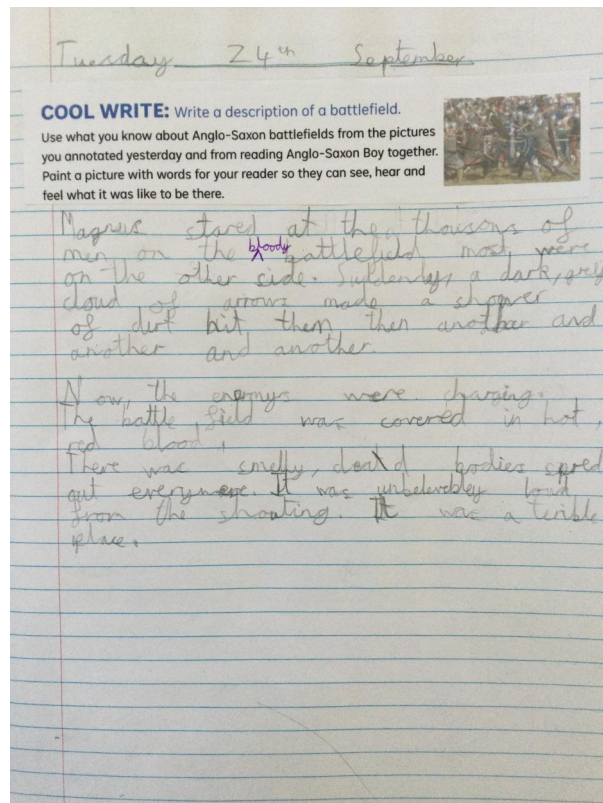 Tuesday 24th September
COOL WRITE: Write a description of a battlefield.
Use what you know about Anglo-Saxon battlefields from the pictures
you annotated yesterday and from reading Anglo-Saxon Boy together.
Paint a picture with words for your reader so they can see, hear and
feel what it was like to be there.
Magnus stared at the thousons of
men on the bloody battlefield most were
on the other side. Suddenley, a dark, grey
cloud of arrows made a shower
of dirt hit them then another and
another and another.
Now, the enemys were charging.
The battle field was covered in hot,
red blood.
There was smelly, dead bodies spred
out everywere. It was unbelevebley loud
from the shouting. It was a terible
place.